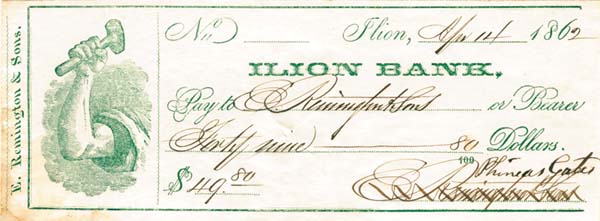 E. Remington & Sons.
No. Ilion, Apr 14 1862
ILION BANK,
Pay to E. Remington & Sons or Bearer
Forty nine 80/100 Dollars.
$49.80 Phineas Gates
E. Remington & Sons